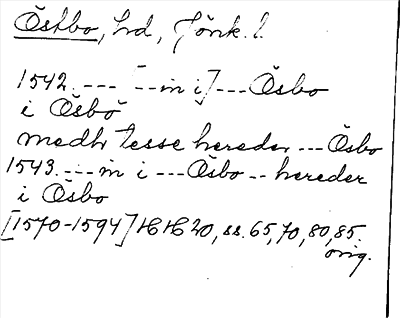 Östbo, hd, Jönk. l.
1542. --- [--in i] --- Ösbo
i Ösbo
medh tesse hereder --- Ösbo
1543. --- in i --- Ösbo -- hereder
i Ösbo
[1570-1594] HH 20, ss. 65, 70, 80, 85.
orig.